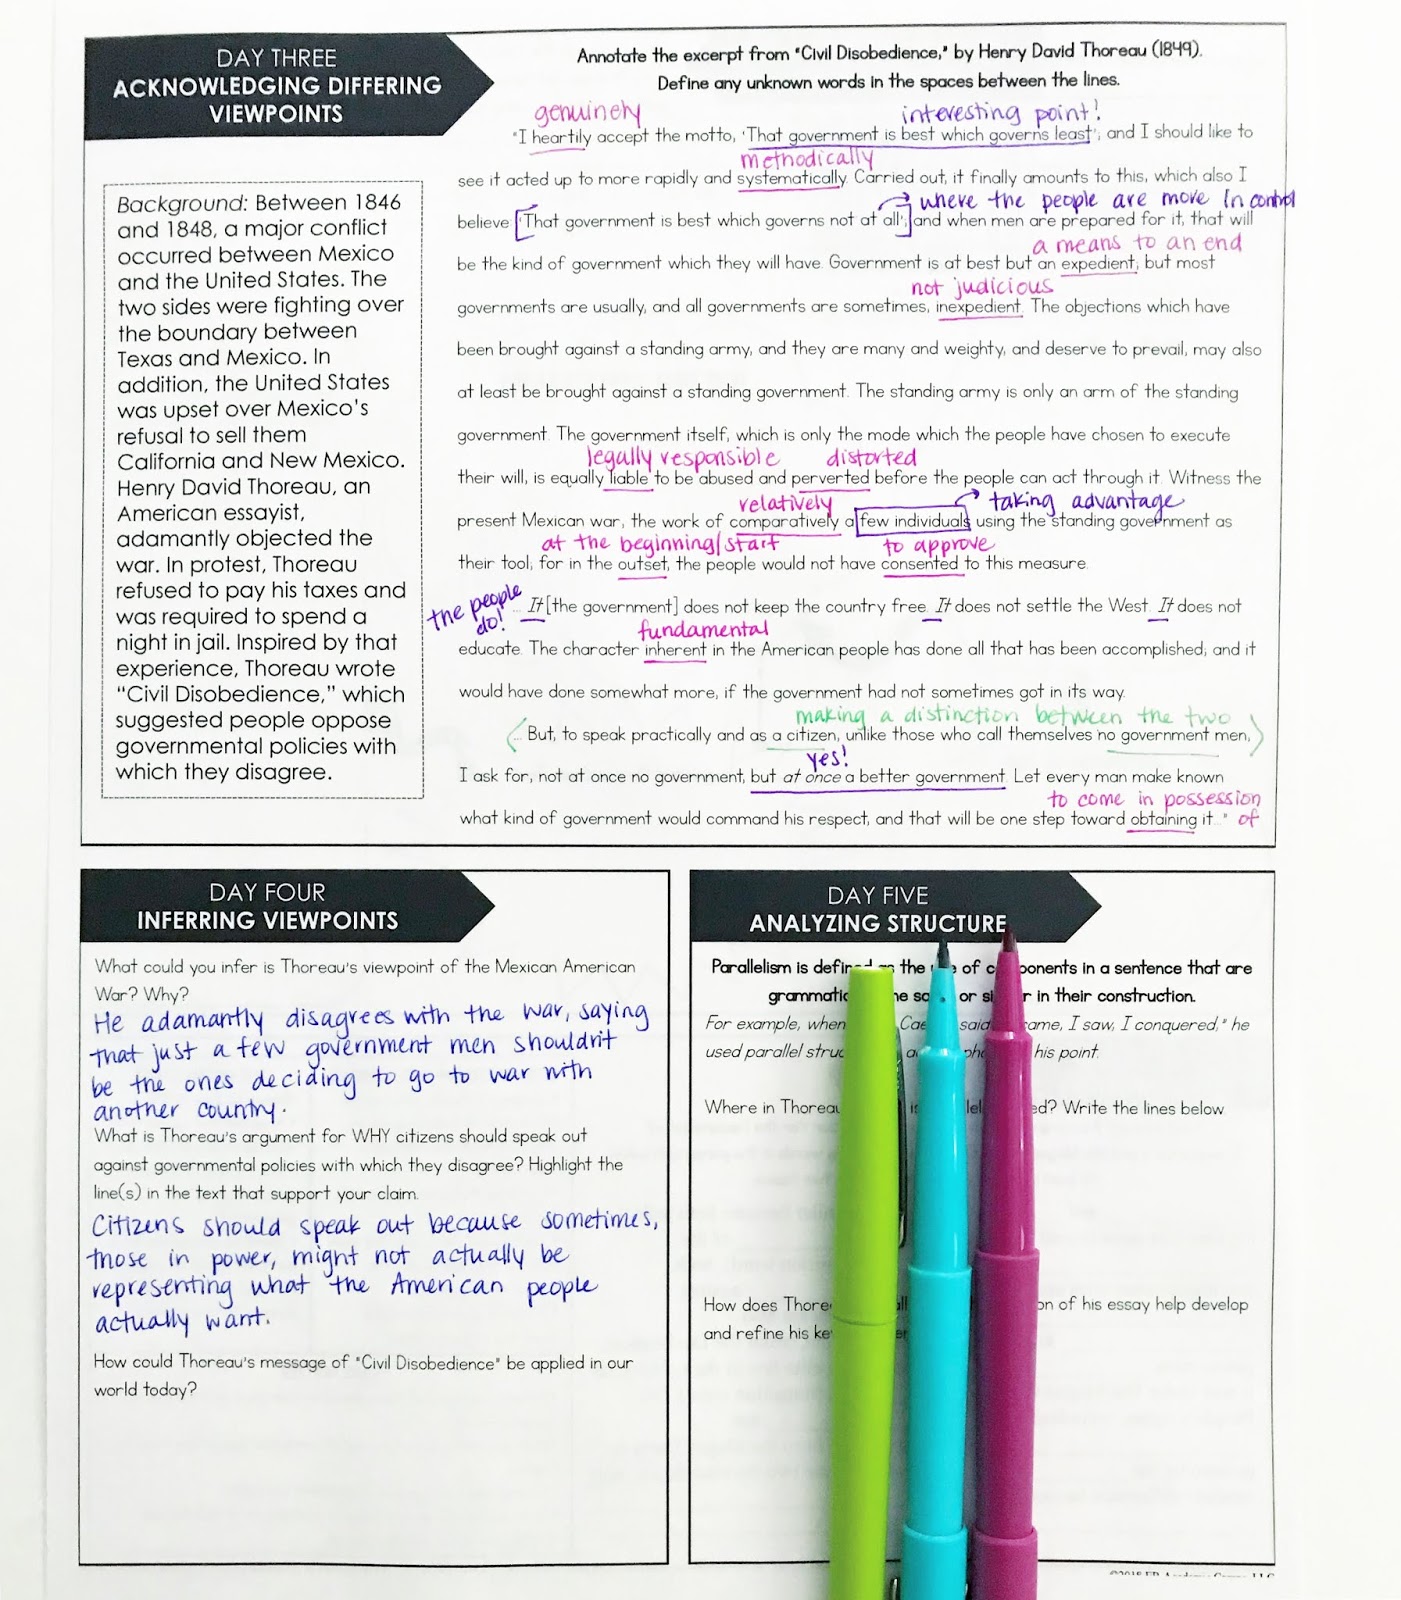 DAY THREE
ACKNOWLEDGING DIFFERING
VIEWPOINTS
Background: Between 1846
and 1848, a major conflict
occurred between Mexico
and the United States. The
two sides were fighting over
the boundary between
Texas and Mexico. In
addition, the United States
was upset over Mexico's
refusal to sell them
California and New Mexico.
Henry David Thoreau, an
American essayist,
adamantly objected the
war. In protest, Thoreau
refused to pay his taxes and
was required to spend a
night in jail. Inspired by that
experience, Thoreau wrote
"Civil Disobedience," which
suggested people oppose
governmental policies with
which they disagree.
Annotate the excerpt from "Civil Disobedience," by Henry David Thoreau (1849).
Define any unknown words in the spaces between the lines.
genuinely interesting point!
"I heartily accept the motto, 'That government is best which governs least'; and I should like to
methodically
see it acted up to more rapidly and systematically. Carried out, it finally amounts to this, which also I
where the people are more in control
believe 'That government is best which governs not at all'; and when men are prepared for it, that will
a means to an end
be the kind of government which they will have. Government is at best but an expedient; but most
not judicious
governments are usually, and all governments are sometimes, inexpedient. The objections which have
been brought against a standing army, and they are many and weighty, and deserve to prevail, may also
at least be brought against a standing government. The standing army is only an arm of the standing
government. The government itself, which is only the mode which the people have chosen to execute
legally responsible distorted
their will, is equally liable to be abused and perverted before the people can act through it. Witness the
relatively taking advantage
present Mexican war, the work of comparatively a few individuals using the standing government as
at the beginning/start to approve
their tool; for in the outset, the people would not have consented to this measure.
the people
do!
... It [the government] does not keep the country free. It does not settle the West. It does not
fundamental
educate. The character inherent in the American people has done all that has been accomplished; and it
would have done somewhat more, if the government had not sometimes got in its way.
making a distinction between the two
... But, to speak practically and as a citizen, unlike those who call themselves no government men,
yes!
I ask for, not at once no government, but at once a better government. Let every man make known
to come in possession
of
what kind of government would command his respect, and that will be one step toward obtaining it..."
DAY FOUR
INFERRING VIEWPOINTS
What could you infer is Thoreau's viewpoint of the Mexican American
War? Why?
He adamantly disagrees with the war, saying
that just a few government men shouldn't
be the ones deciding to go to war with
another country.
What is Thoreau's argument for WHY citizens should speak out
against governmental policies with which they disagree? Highlight the
line(s) in the text that support your claim.
Citizens should speak out because sometimes,
those in power, might not actually be
representing what the American people
actually want.
How could Thoreau's message of "Civil Disobedience" be applied in our
world today?
DAY FIVE
ANALYZING STRUCTURE
Parallelism is defined as the of components in a sentence that are
or in their construction.
For example, when said ame, I saw, I conquered," he
used parallel his point.
Where in ed? Write the lines below.
How does on of his essay help develop
and refine his